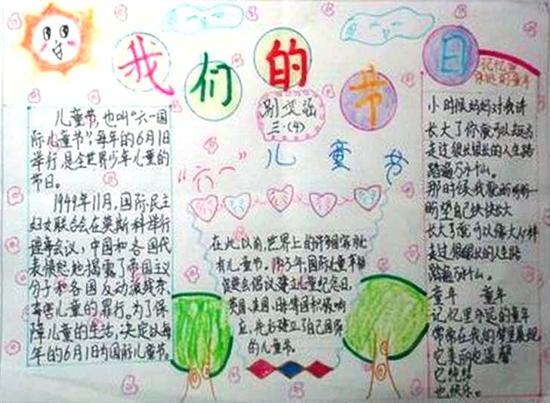 我们的节日
三(4)
"六一"儿童节
儿童节,也叫"六一国
际儿童节",每年的6月1日
举行,是全世界少年儿童的
节日。
1949年11月,国际民主
妇女联合会在莫斯科举行
理事会议,中国和各国代
表愤怒地揭露了帝国主义
分子和各国反动派残杀、
毒害儿童的罪行。为了保
障儿童的生活,决定以每
年的6月1日为国际儿童节。
在此以前,世界上的许多国家就
有儿童节。
建立儿童纪念日,
英国、美国、
应,先后建立了自己国家
的儿童节。
记忆里
的童年
小时候妈妈对我讲
长大了你就可以
走过很长很长的人生路
踏遍万水千山。
那时候我
盼望自己快快长大
长大了就可以像大人样
走过很长很长的人生路
踏遍万水千山。
童年 童年
记忆里
的童年
常常在我的梦里展现
它美丽也温馨
它纯结
也快乐。